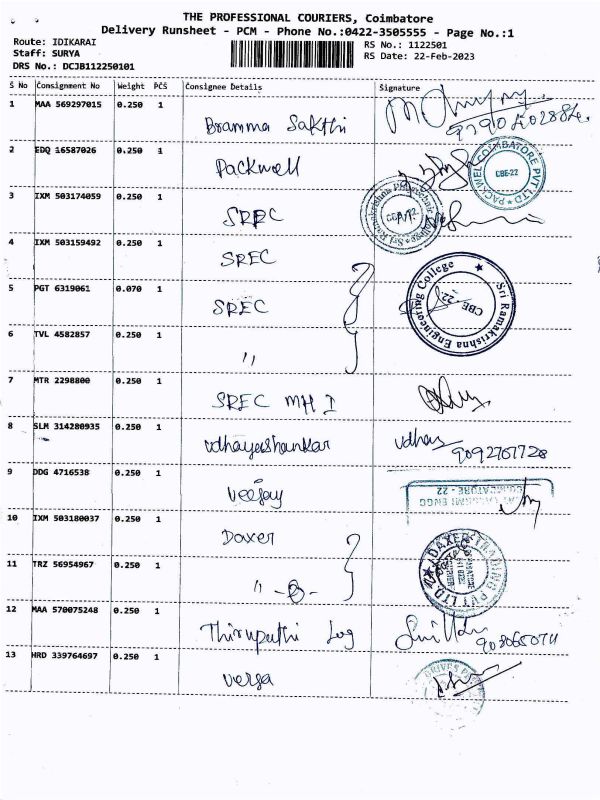 THE PROFESSIONAL COURIERS, Coimbatore
Delivery Runsheet - PCM - Phone No.:0422-3505555 - Page No.:1
Route: IDIKARAI
RS No.: 1122501
Staff: SURYA
RS Date: 22-Feb-2023
DRS No.: DCJB112250101
S No Consignment No Weight PCS Consignee Details Signature
1 MAA 569297015 0.250 1 Bramma Sakthi
2 EDQ 16587026 0.250 1 Packwell
PACKWEL COIMBATORE PVT LTD CBE-22
3 IXM 503174059 0.250 1 SRPC
Sri Ramakrishna Polytechnic College
4 IXM 503159492 0.250 1 SREC
5 PGT 6319061 0.070 1 SREC
Sri Ramakrishna Engineering College CBE - 22.
6 TVL 4582857 0.250 1 "
7 MTR 2298800 0.250 1 SREC MH I
8 SLM 314280935 0.250 1 Udhayashankar
9092767728
9 DDG 4716538 0.250 1 Veejay
ENGG
COIMBATORE - 22
10 IXM 503180037 0.250 1 Daxer
11 TRZ 56954967 0.250 1 "
DAXER TRADING PVT LTD
12 MAA 570075248 0.250 1 Thirupathi Log
13 HRD 339764697 0.250 1 Versa